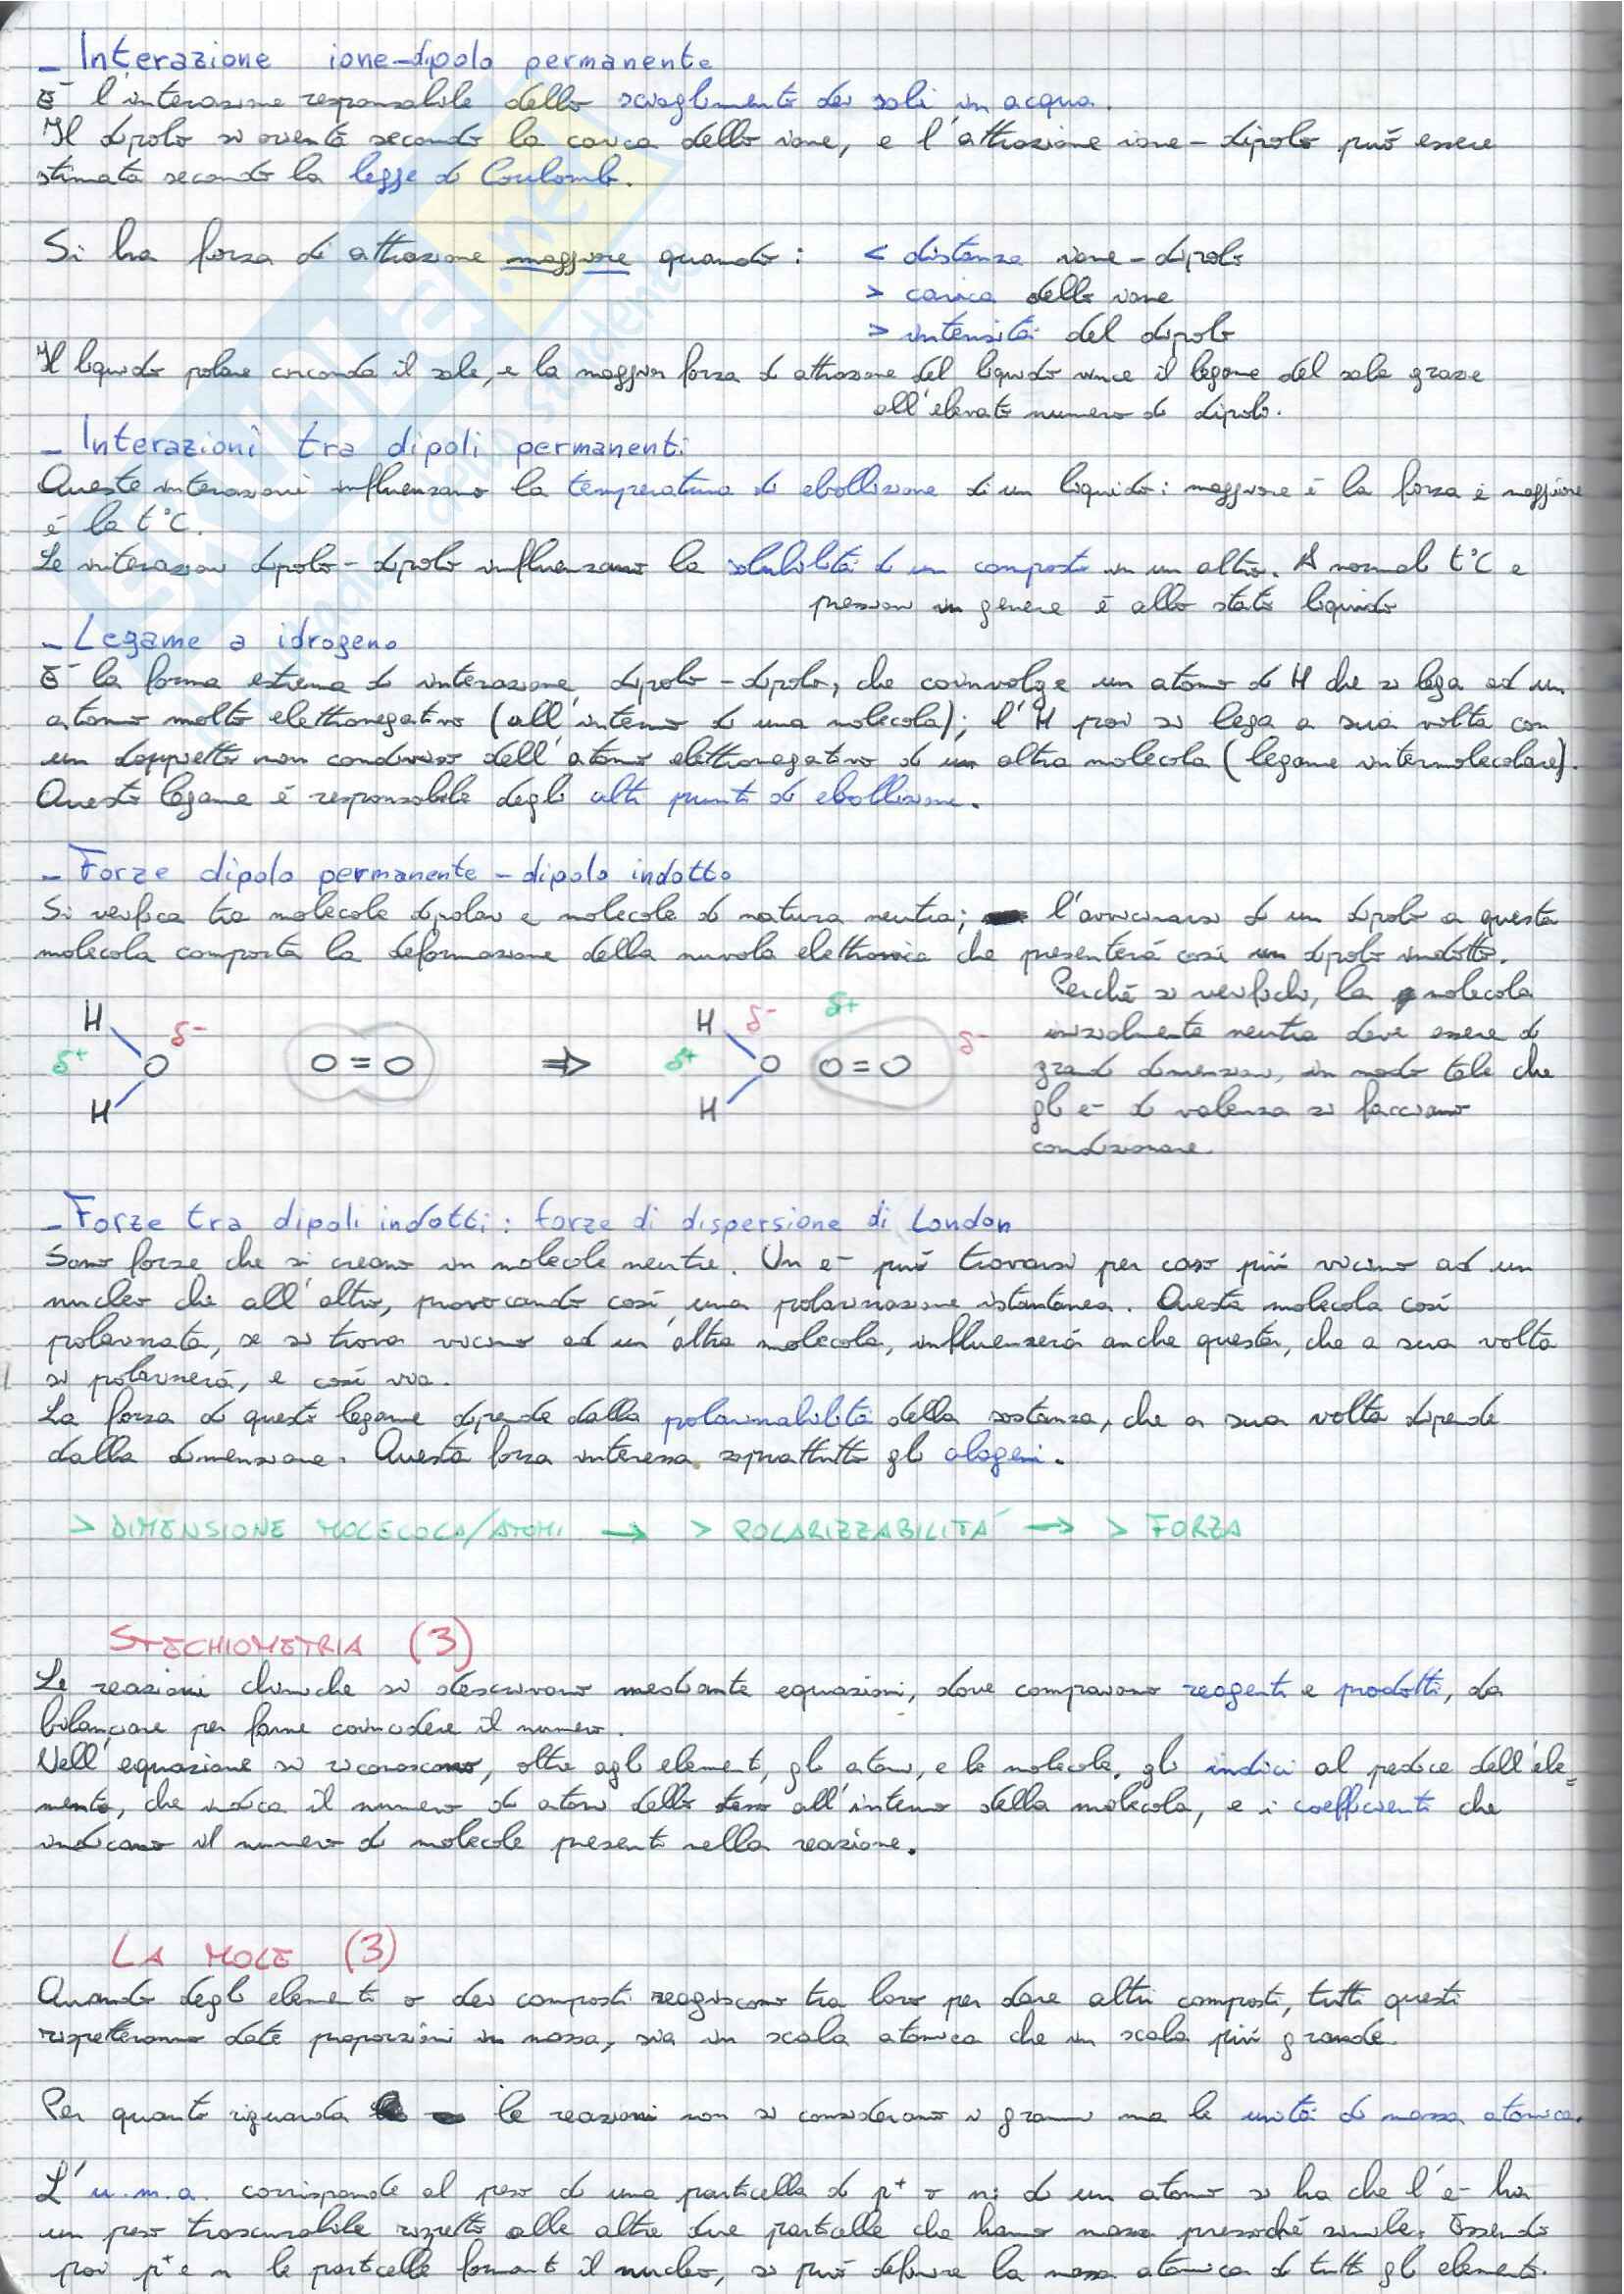 - Interazione ione-dipolo permanente
È l'interazione responsabile dello scioglimento dei sali in acqua.
Il dipolo si orienta secondo la carica dello ione, e l'attrazione ione-dipolo può essere
stimata secondo la legge di Coulomb.
Si ha forza di attrazione maggiore quando: < distanza ione-dipolo
> carica dello ione
> intensità del dipolo
Il liquido polare circonda il sale, e la maggior forza di attrazione del liquido vince il legame del sale grazie
all'elevato numero di dipoli.
- Interazioni tra dipoli permanenti
Queste interazioni influenzano la temperatura di ebollizione di un liquido: maggiore è la forza e maggiore
è la t°C.
Le interazioni dipolo-dipolo influenzano la solubilità di un composto in un altro. A normali t°C e
pressioni in genere è allo stato liquido
- Legame a idrogeno
È la forma estrema di interazione dipolo-dipolo, che coinvolge un atomo di H che si lega ad un
atomo molto elettronegativo (all'interno di una molecola); l'H poi si lega a sua volta con
un doppietto non condiviso dell'atomo elettronegativo di un altra molecola (legame intermolecolare).
Questo legame è responsabile degli alti punti di ebollizione.
- Forze dipolo permanente - dipolo indotto
Si verifica tra molecole dipolari e molecole di natura neutra; l'avvicinarsi di un dipolo a questa
molecola comporta la deformazione della nuvola elettronica che presenterà così un dipolo indotto.
Perché si verifichi, la molecola
inizialmente neutra deve essere di
grandi dimensioni, in modo tale che
gli e- di valenza si facciano
condizionare.
H δ- H δ- δ+
δ+ O O=O ⇒ δ+ O O=O δ-
H H
- Forze tra dipoli indotti: forze di dispersione di London
Sono forze che si creano in molecole neutre. Un e- può trovarsi per caso più vicino ad un
nucleo che all'altro, provocando così una polarizzazione istantanea. Questa molecola così
polarizzata, se si trova vicino ad un'altra molecola, influenzerà anche questa, che a sua volta
si polarizzerà, e così via.
La forza di questo legame dipende dalla polarizzabilità della sostanza, che a sua volta dipende
dalla dimensione. Questa forza interessa soprattutto gli alogeni.
> DIMENSIONE MOLECOLA/ATOMI → > POLARIZZABILITÁ → > FORZA
STECHIOMETRIA (3)
Le reazioni chimiche si descrivono mediante equazioni, dove compaiono reagenti e prodotti, da
bilanciare per farne coincidere il numero.
Nell'equazione si riconoscono, oltre agli elementi, gli atomi, e le molecole, gli indici al pedice dell'ele-
mento, che indica il numero di atomi dello stesso all'interno della molecola, e i coefficienti che
indicano il numero di molecole presenti nella reazione.
LA MOLE (3)
Quando degli elementi o dei composti reagiscono tra loro per dare altri composti, tutti questi
rispetteranno date proporzioni in massa, sia in scala atomica che in scala più grande.
Per quanto riguarda le reazioni non si considerano i grammi ma le unità di massa atomica.
L'u.m.a. corrisponde al peso di una particella di p+ o n; di un atomo si ha che l'e- ha
un peso trascurabile rispetto alle altre due particelle che hanno massa pressoché simile. Essendo
poi p+ e n le particelle formanti il nucleo, si può definire la massa atomica di tutti gli elementi.